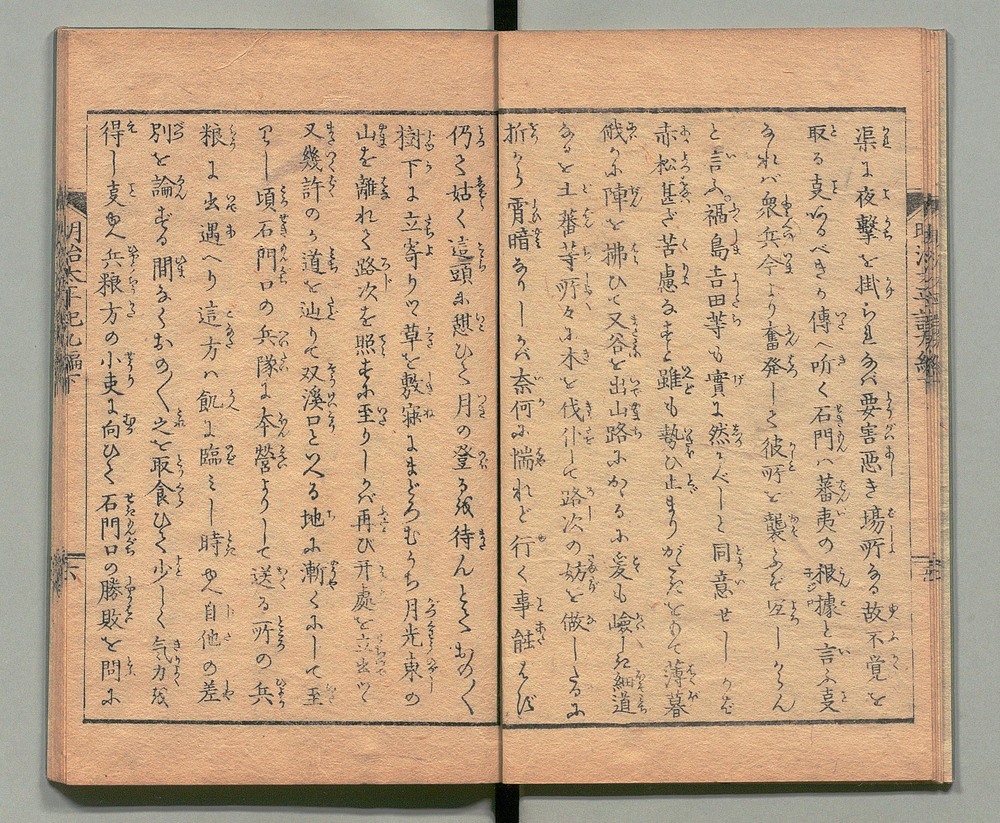 渠に夜撃を掛られなバ要害悪き場所なる故不覚を
取る事あるべきか傳へ听く石門ハ蕃夷の根據と言ふ支
あれバ衆兵今より奮発して彼所を襲ふぞ宜しからん
と言ふ福島吉田等も實に然べしと同意せしかど
赤松甚ざ苦慮なすと雖も勢ひ止まりがたきをもて薄暮
俄かに陣を拂ひて又谷を出山路にかゝるに爰も嶮しき細道
なると土蕃等所々に木を伐仆して路次の妨を做したるに
折から宵暗なりしかバ奈何に惴れど行く事能はず
仍て姑く這頭に憩ひて月の登るを待んとておの〳〵
樹下に立寄りツ草を敷寐にまどろむうち月光東の
山を離れて路次を照すに至りしかバ再び其處を立出ツ
又幾許の道を辿りて双溪口といへる地に漸くにして至
りし頃石門口の兵隊に本營よりして送る所の兵
粮に出遇へり這方ハ飢に臨みし時也自他の差
別を論ずる間なくおの〳〵之を取食ひて少しく気力を
得し是兵粮方の小吏に向ひて石門口の勝敗を問に
明治太平記九編下
六